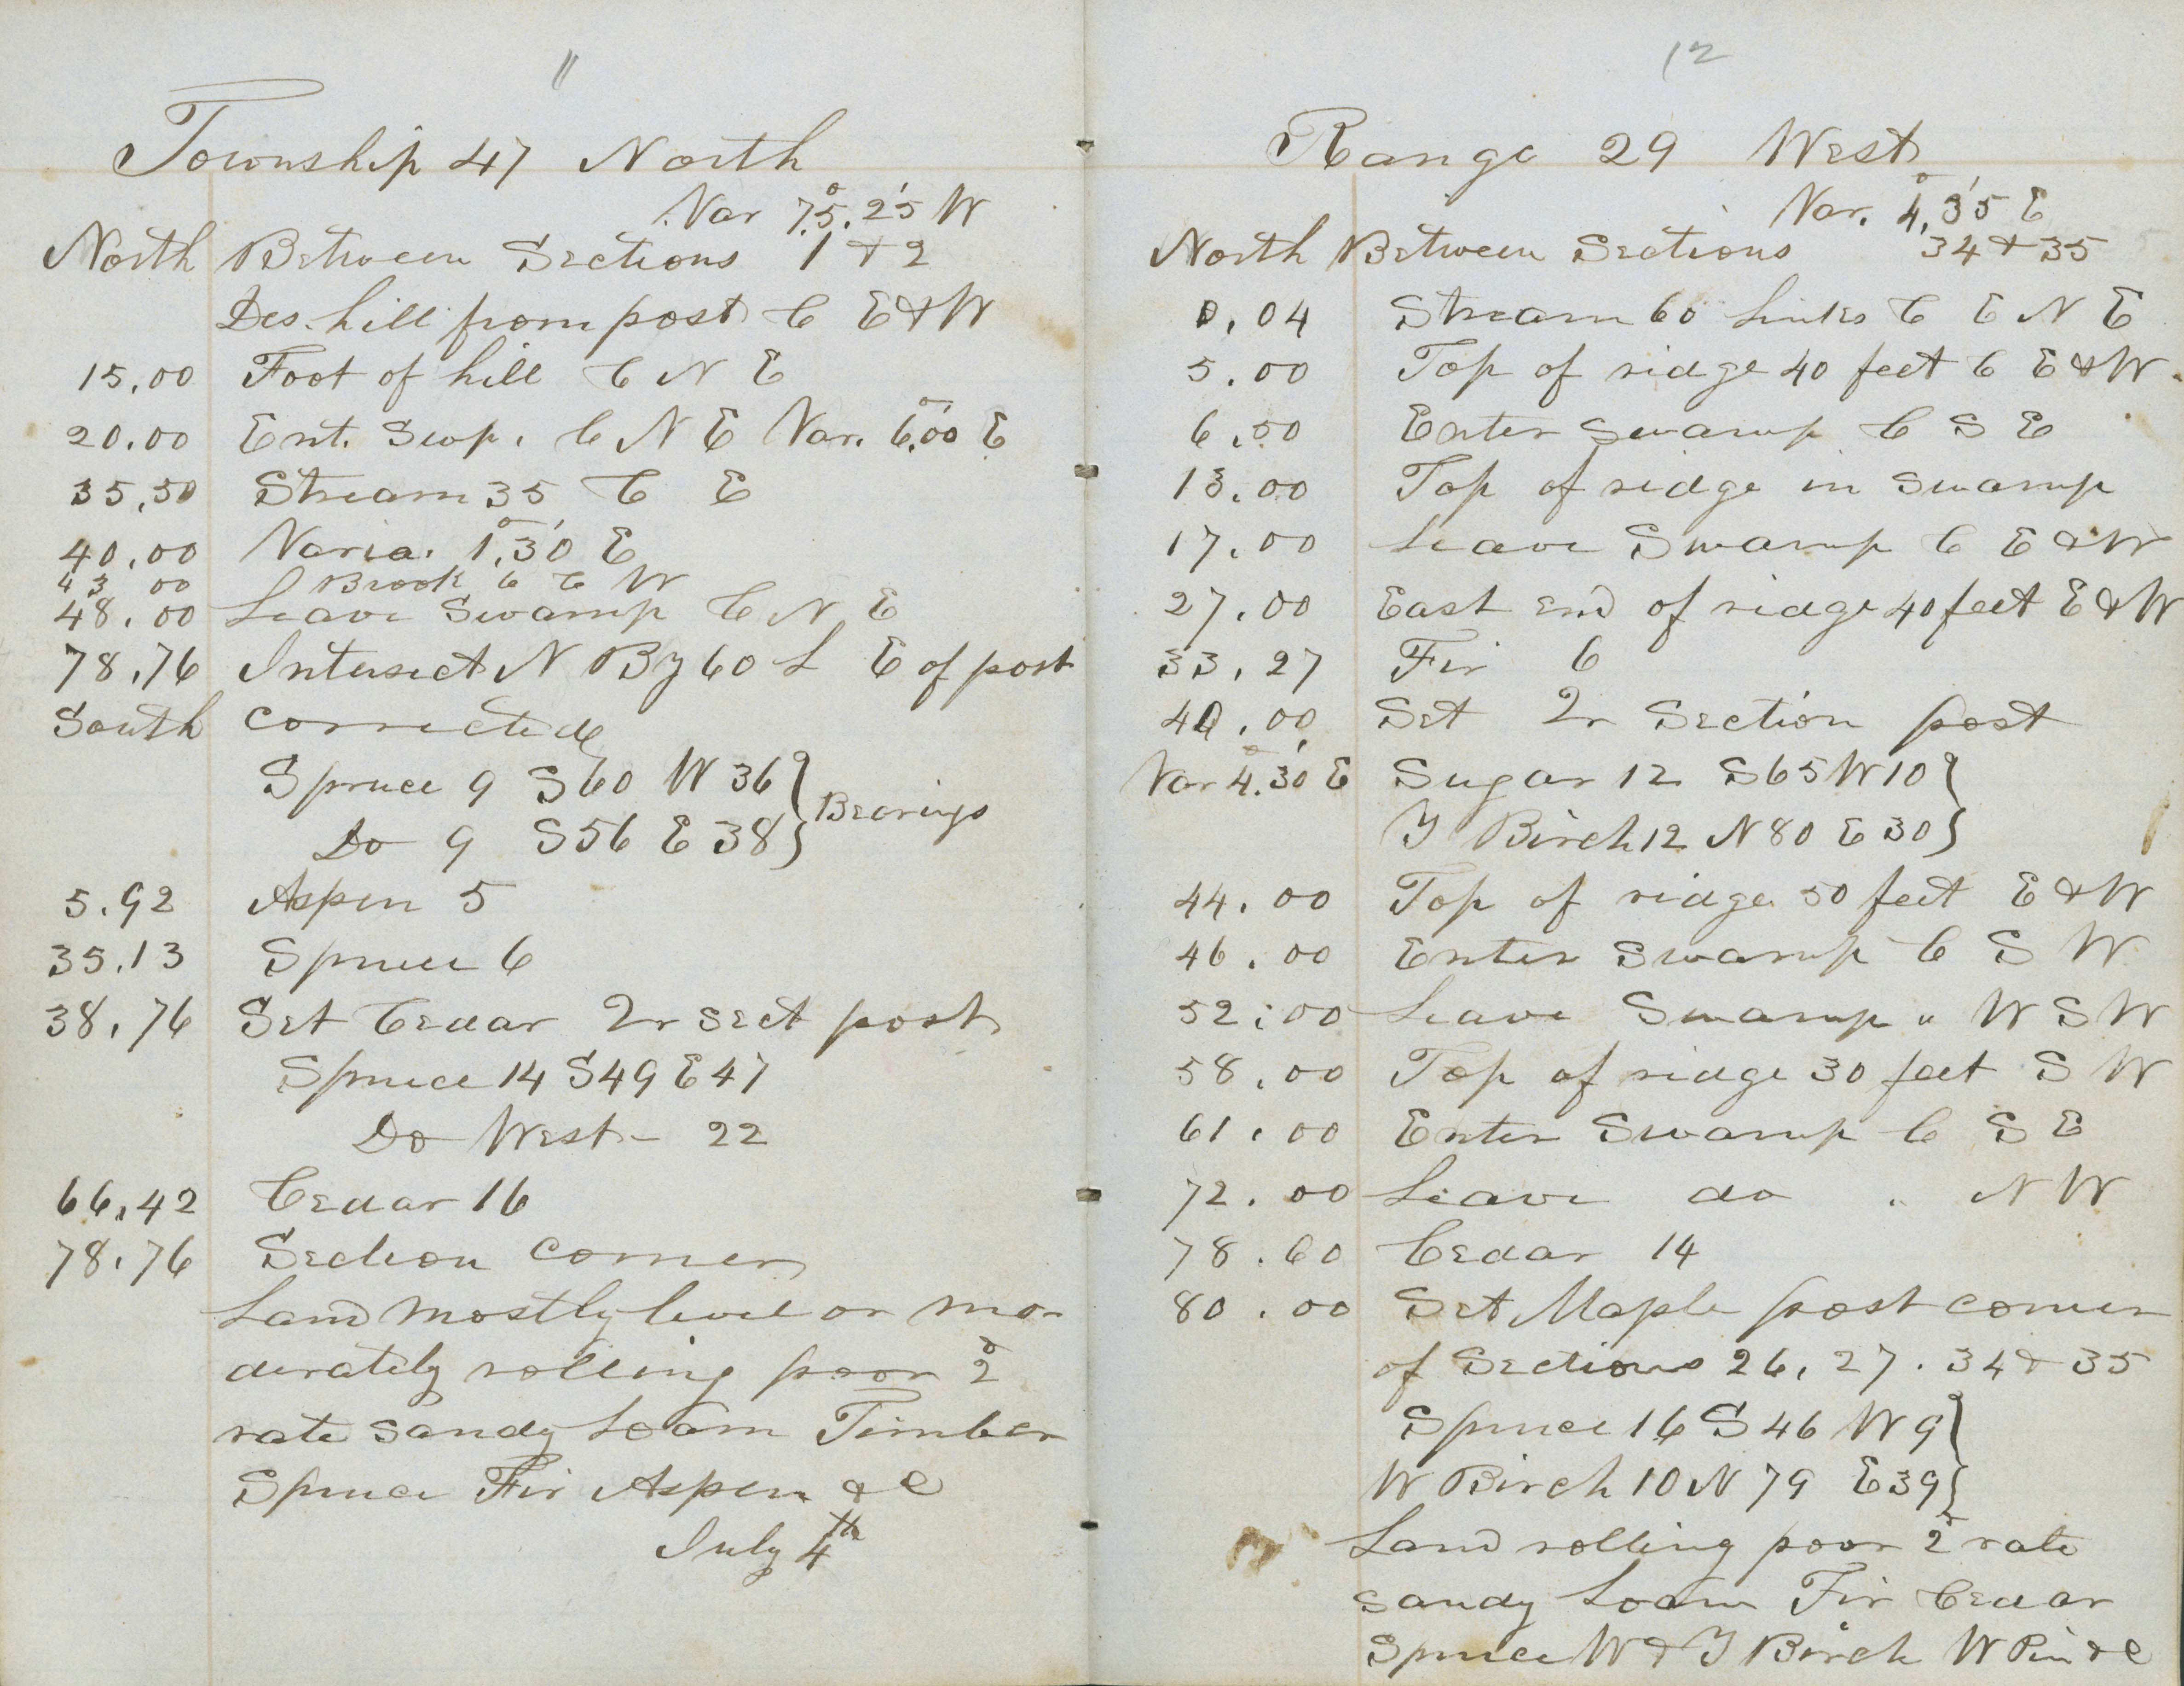 11
Township 47 North
Var 75°.25' W
North Between Sections 1 & 2
Des. hill from post C E & W
15.00 Foot of hill C N E
20.00 Ent. Swp. C N E Var. 6°.00' E
35.50 Stream 35 C E
40.00 Varia. 1°.30' E
43 00 Brook 6 C W
48.00 Leave Swamp C N E
78.76 Intersect N By 60 L E of post
South corrected
Spruce 9 S60 W 36 }
Bearings
Do 9 S56 E 38 }
5.92 Aspen 5
35.13 Spruce 6
38.76 Set Cedar Qr sect post
Spruce 14 S49 E 47
Do West - 22
66.42 Cedar 16
78.76 Section corner
Land mostly level or mo-
derately rolling poor 2d
rate sandy Loam Timber
Spruce Fir Aspen &c
July 4th
12
Range 29 West
Var. 4°.35' E
North Between Sections 34 & 35
0.04 Stream 60 Links C E N E
5.00 Top of ridge 40 feet C E & W.
6.50 Enter Swamp C S E
13.00 Top of ridge in swamp
17.00 Leave Swamp C E & W
27.00 East end of ridge 40 feet E & W
33.27 Fir 6
40.00 Set Qr Section post
Var 4°.30' E Sugar 12 S65 W 10 }
Y Birch 12 N 80 E 30 }
44.00 Top of ridge 50 feet E & W
46.00 Enter Swamp C S W
52.00 Leave Swamp " W S W
58.00 Top of ridge 30 feet S W
61.00 Enter Swamp C S E
72.00 Leave do " N W
78.60 Cedar 14
80.00 Set Maple post corner
of Sections 26, 27. 34 & 35
Spruce 16 S 46 W 9 }
W Birch 10 N 79 E 39 }
Land rolling poor 2d rate
sandy Loam Fir Cedar
Spruce W & Y Birch W Pin &c